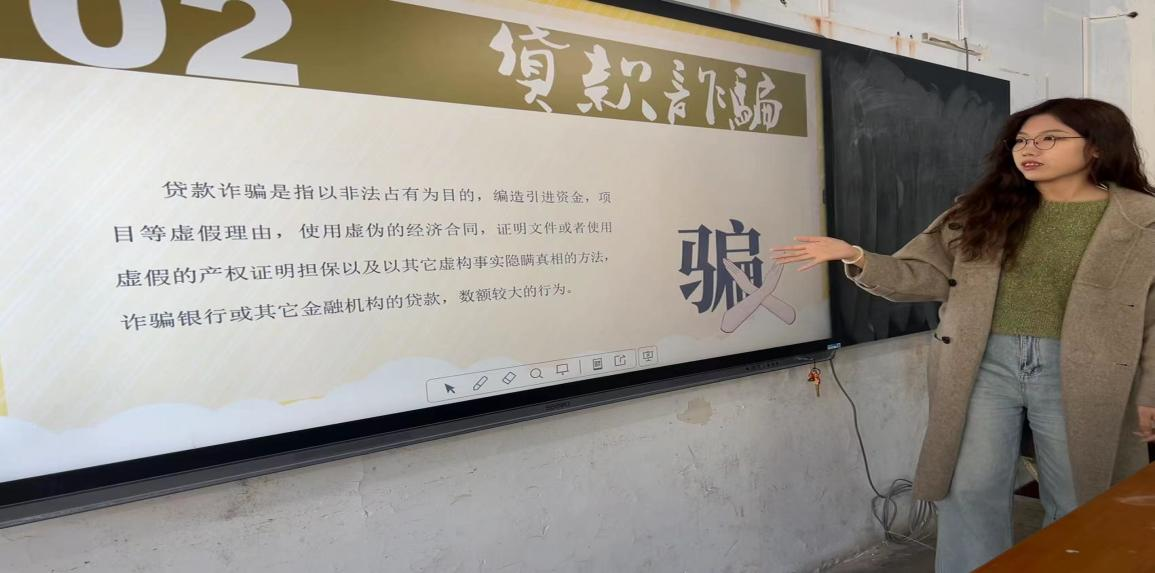 02
貸款詐騙
贷款诈骗是指以非法占有为目的，编造引进资金，项
目等虚假理由，使用虚伪的经济合同，证明文件或者使用
虚假的产权证明担保以及以其它虚构事实隐瞒真相的方法，
诈骗银行或其它金融机构的贷款，数额较大的行为。
骗